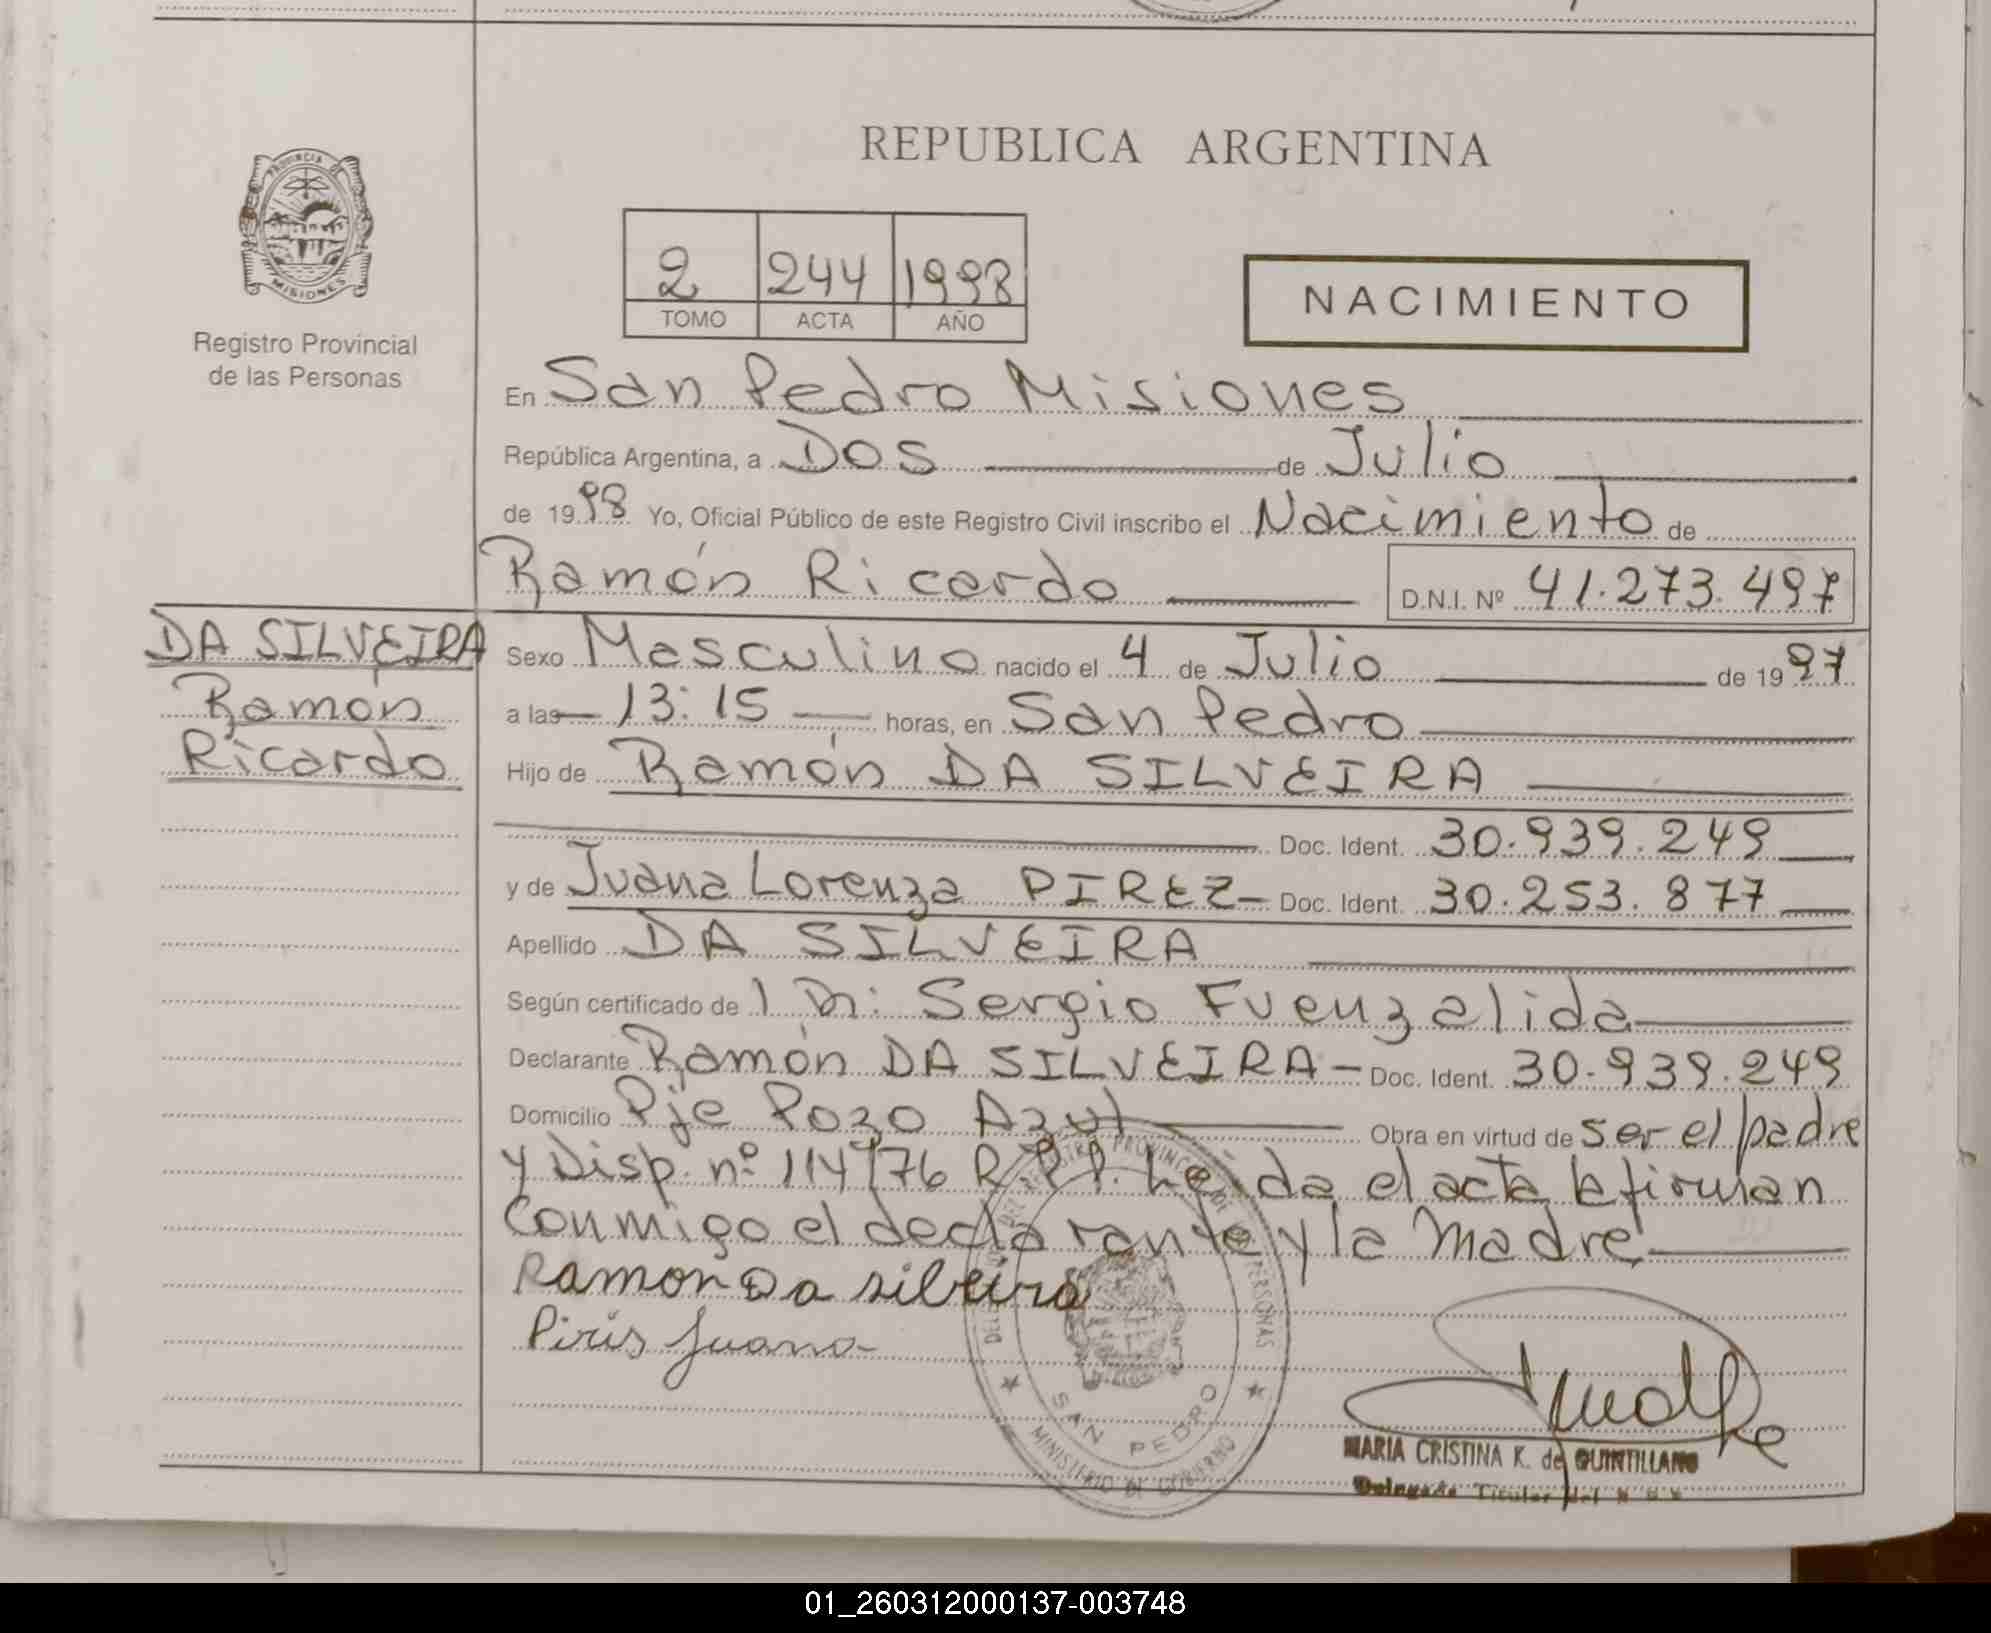 REPUBLICA ARGENTINA
PROVINCIA DE
MISIONES
Registro Provincial
de las Personas
2 244 1998
TOMO ACTA AÑO
NACIMIENTO
En San Pedro Misiones
República Argentina, a Dos de Julio
de 1998 Yo, Oficial Público de este Registro Civil inscribo el Nacimiento de
Ramón Ricardo D.N.I. Nº 41.273.497
DA SILVEIRA
Ramón
Ricardo
Sexo Masculino nacido el 4 de Julio de 1997
a las 13:15 horas, en San Pedro
Hijo de Ramón DA SILVEIRA
Doc. Ident. 30.939.249
y de Juana Lorenza PIREZ Doc. Ident. 30.253.877
Apellido DA SILVEIRA
Según certificado de l Dr: Sergio Fuenzalida
Declarante Ramón DA SILVEIRA Doc. Ident. 30.939.249
Domicilio Pje Pozo Azul Obra en virtud de ser el padre
y Disp. nº 114/76 R.P.P. Leida el acta la firman
conmigo el declarante y la Madre
Ramon Da silveira
Piris Juana
SAN PEDRO
MINISTERIO DE GOBIERNO
MARIA CRISTINA K. de QUINTILLANO
Delegada Titular del
01_260312000137-003748